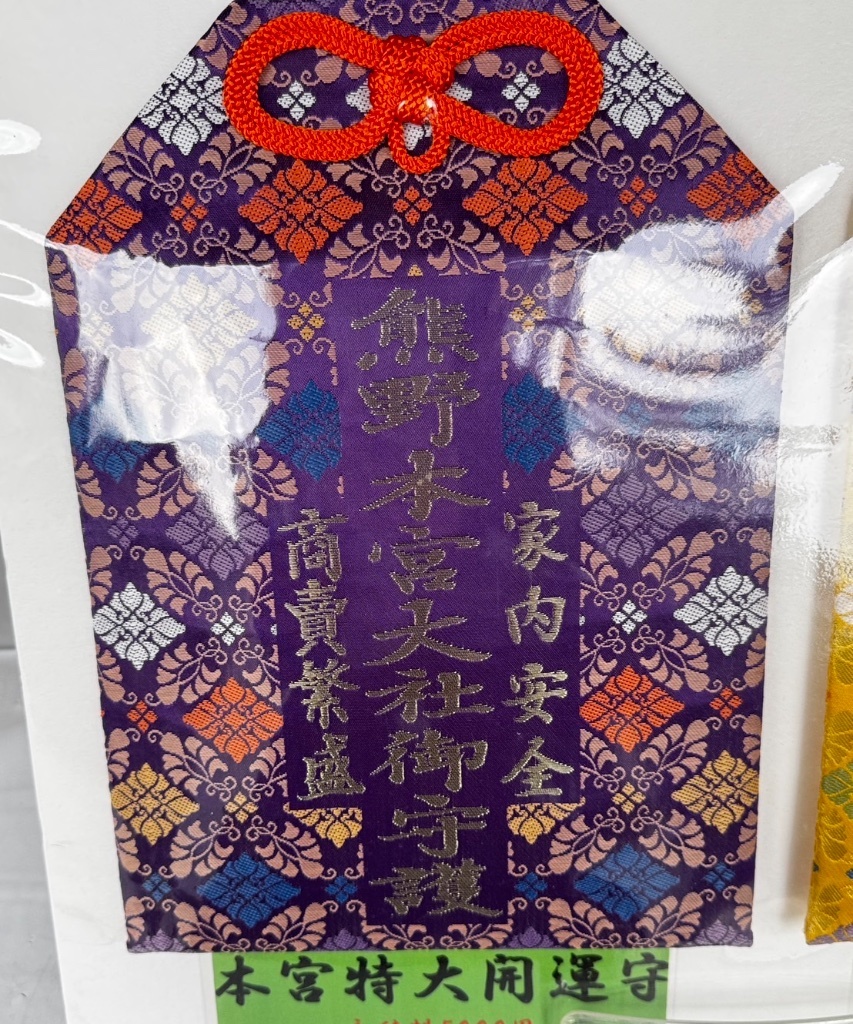 家内安全
熊野本宮大社御守護
商賣繁盛
本宮特大開運守
5000円